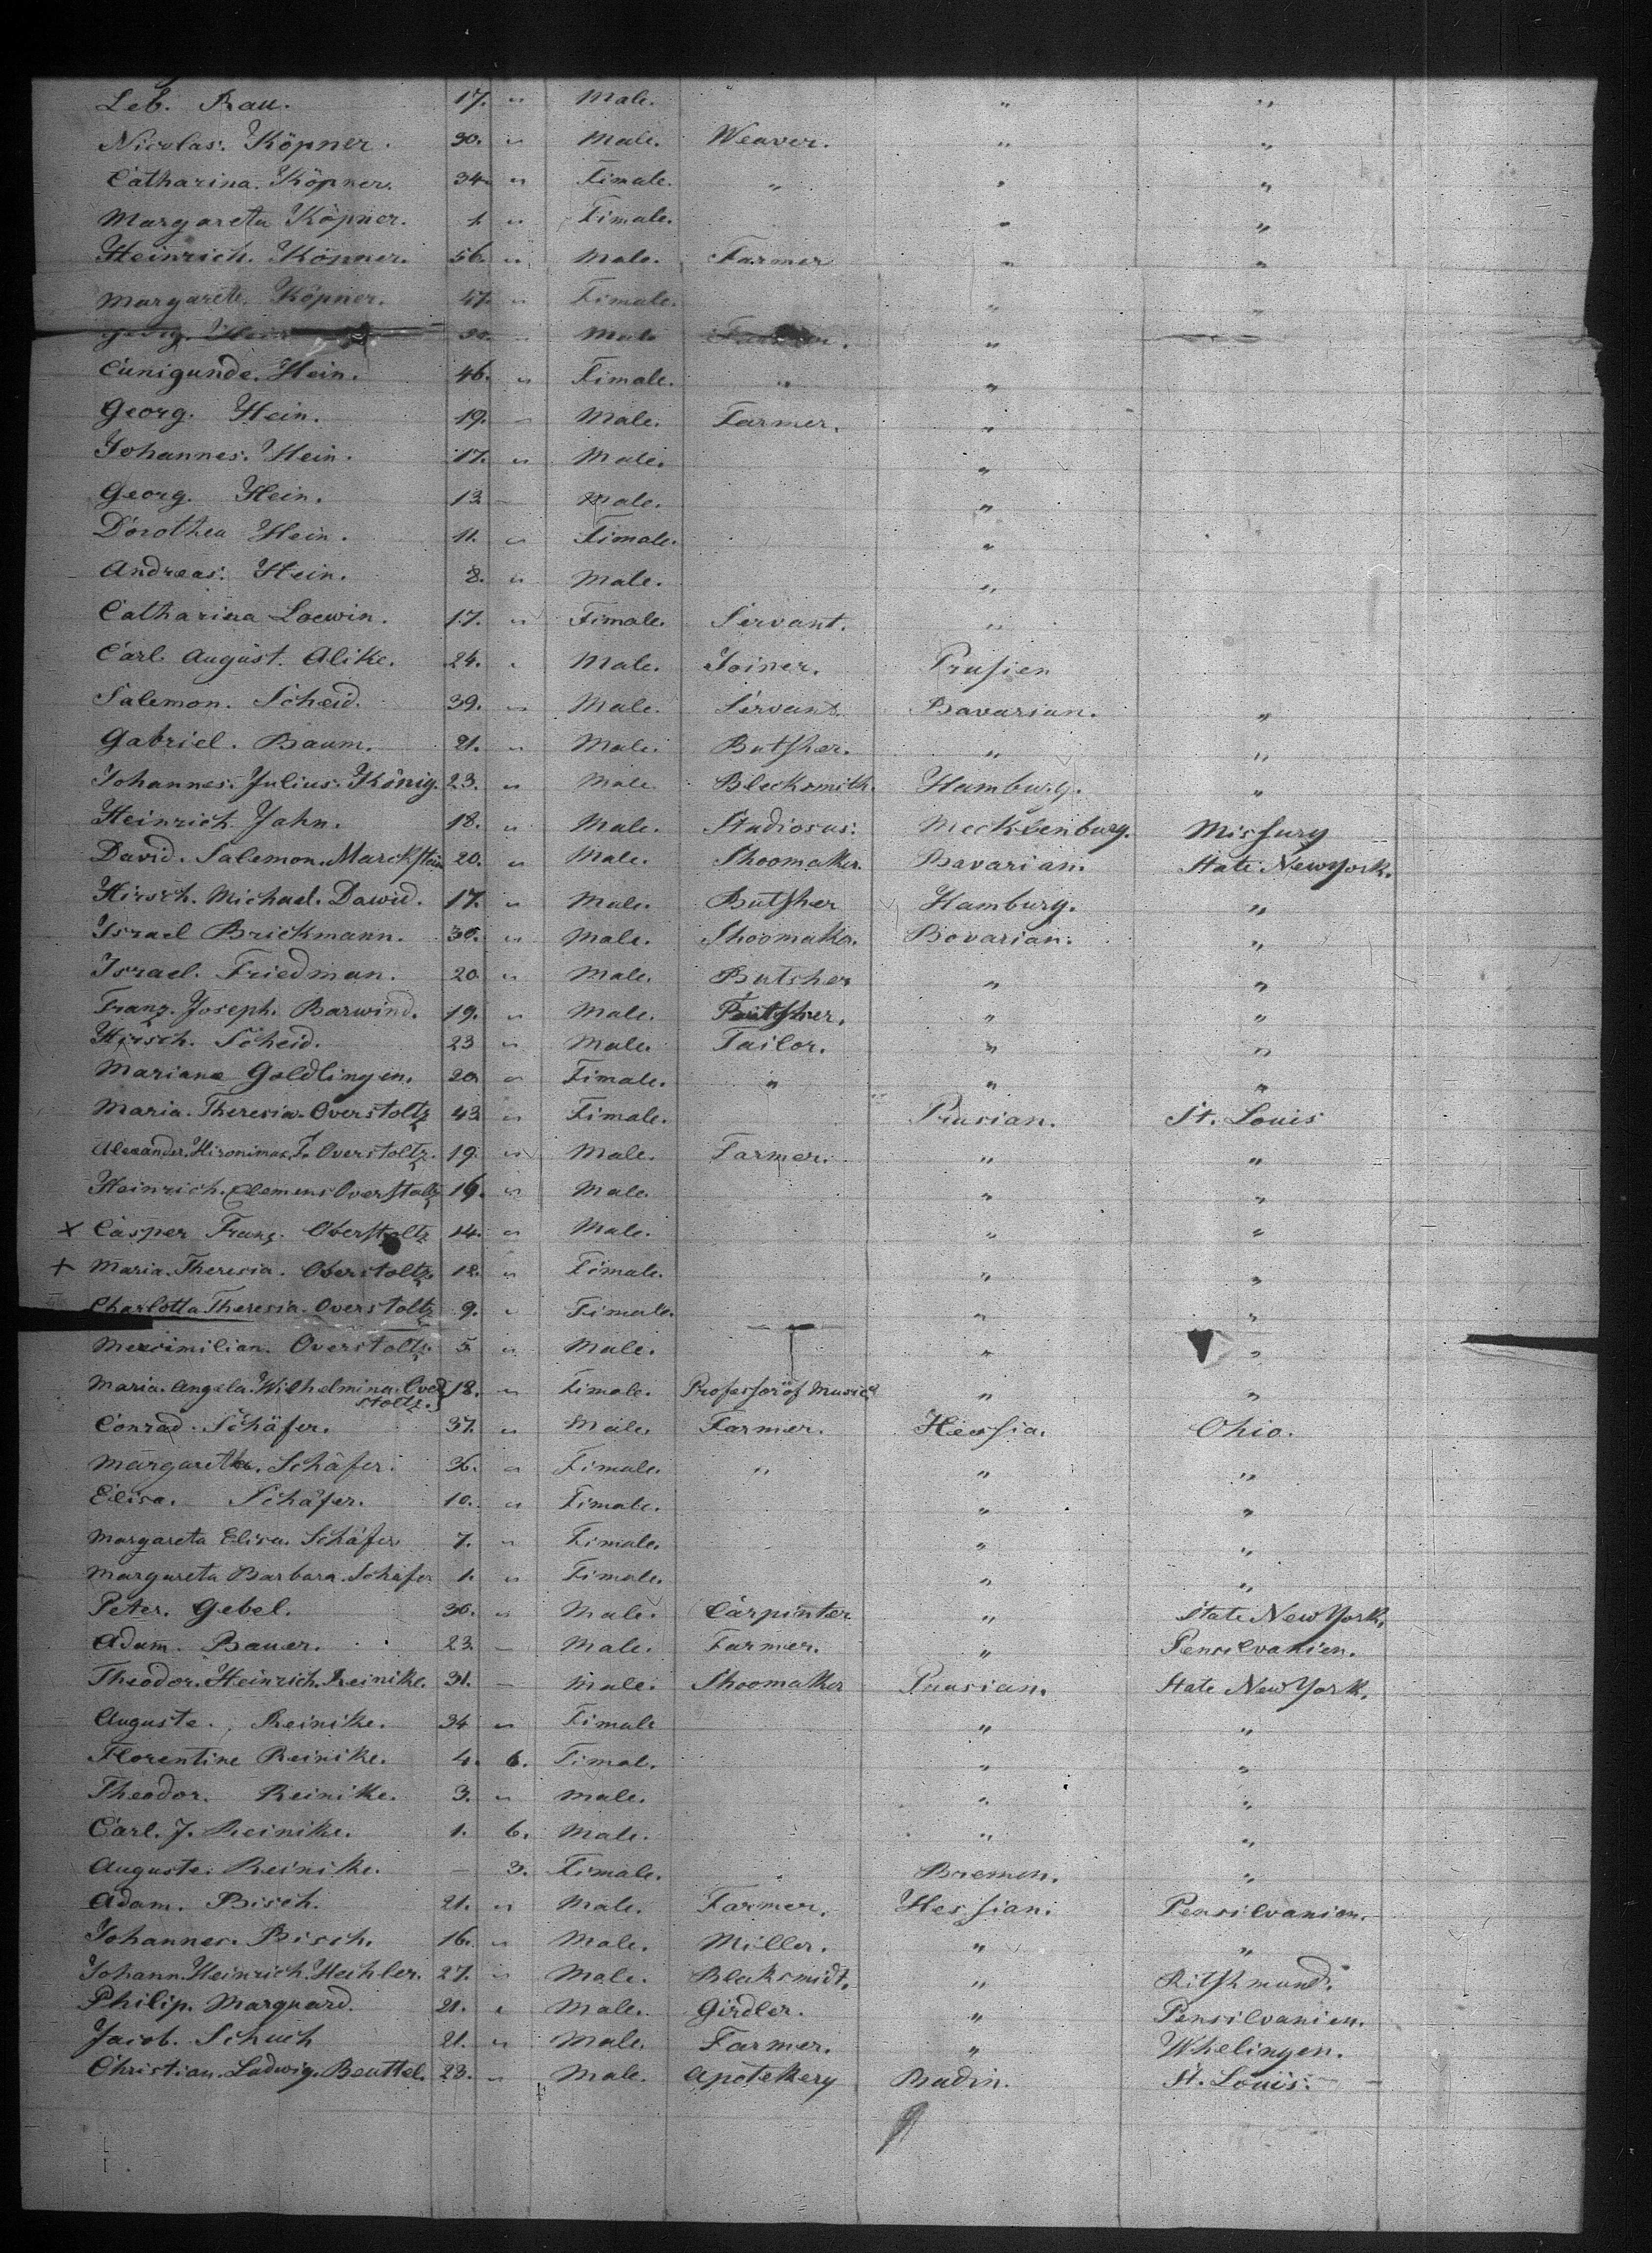 Leb. Rau. 17. " Male. " "
Nicolas. Köpner. 30. " Male. Weaver. " "
Catharina. Köpner. 34. " Fimale. " " "
Margareta Köpner. 1. " Fimale. " "
Heinrich. Köpner. 56. " Male. Farmer " "
Margarete. Köpner. 47. " Fimale. " "
Hein 50. " Male "
Cunigunde. Hein. 46. " Fimale. " "
Georg. Hein. 19. – Male. Farmer. "
Johannes. Hein. 17. " Male. "
Georg. Hein. 13 – Male. "
Dorothea Hein. 11. " Fimale. "
Andreas. Hein. 8. " Male. "
Catharina Loewin. 17. " Fimale. Servant. "
Carl. August. Alike. 24. " Male. Joiner. Prusien
Salemon. Scheid. 39. " Male. Servant. Bavarian. "
Gabriel. Baum. 21. " Male. Butsher. " "
Johannes. Julius. König. 23. " Male. Blecksmith. Hamburg. "
Heinrich. Jahn. 18. " Male. Studiosus. Mecklenburg. Missury
David. Salemon. Marckstein 20. " Male. Shoomaker. Bavarian. State NewYork.
Hirsch. Michael. Dawid. 17. " Male. Butsher Hamburg. "
Israel Brickmann. 30. " Male. Shoomaker. Bovarian. "
Israel. Friedman. 20. " Male. Butsher " "
Franz. Joseph. Barwind. 19. " Male. Butsher. " "
Hirsch. Scheid. 23 " Male. Tailor. " "
Mariane Goldlingen. 20. " Fimale. " " "
Maria. Theresia. Overstoltz 43 " Fimale. Prusian. St. Louis
Alexander. Hironimus. F. Overstoltz. 19. " Male. Farmer. " "
Heinrich. Clemens Overstoltz 16. " Male. " "
× Casper Franz. Oberstoltz 14. " Male. " "
+ Maria. Theresia. Oberstoltz. 12. " Fimale. " "
Charlotta Theresia. Overstoltz 9. " Fimale. " "
Meximilian. Overstoltz. 5. " Male. " "
Maria. Angela. Wilhelmina. Over 18. " Fimale. Professor of Music " "
stoltz.
Conrad. Schäfer. 37. " Male. Farmer. Hessia. Ohio.
Margaretha. Schäfer. 36. " Fimale. " " "
Elisa. Schäfer. 10. " Fimale. " "
Margareta Elisa. Schäfer 7. " Fimale. " "
Margareta Barbara. Schäfer 1. " Fimale. " "
Peter. Gebel. 30. " Male. Carpinter " State New York.
Adam. Bauer. 23 – Male. Farmer. " Pensilvanien.
Theodor. Heinrich. Reinike. 31. – Male. Shoomaker Prusian. State New York.
Auguste. Reinike. 34 " Fimale " "
Florentine Reinike. 4. 6. Fimale. " "
Theodor. Reinike. 3. " Male. " "
Carl. J. Reinike. 1. 6. Male. " "
Auguste. Reinike. – 3. Fimale. Bremen. "
Adam. Bisch. 21. " Male. Farmer. Hessian. Pensilvanien.
Johannes. Bisch. 16. " Male. Miller. " "
Johann. Heinrich. Hechler. 27. " Male. Blaksmidt. " Ritshmund.
Philip. Marguard. 21. " Male. Girdler. " Pensilvanien.
Jacob. Schuch 21. " Male. Farmer. " Whelingen.
Christian. Ludwig. Beuttel. 23. " Male. Apotekery Badin. St. Louis.